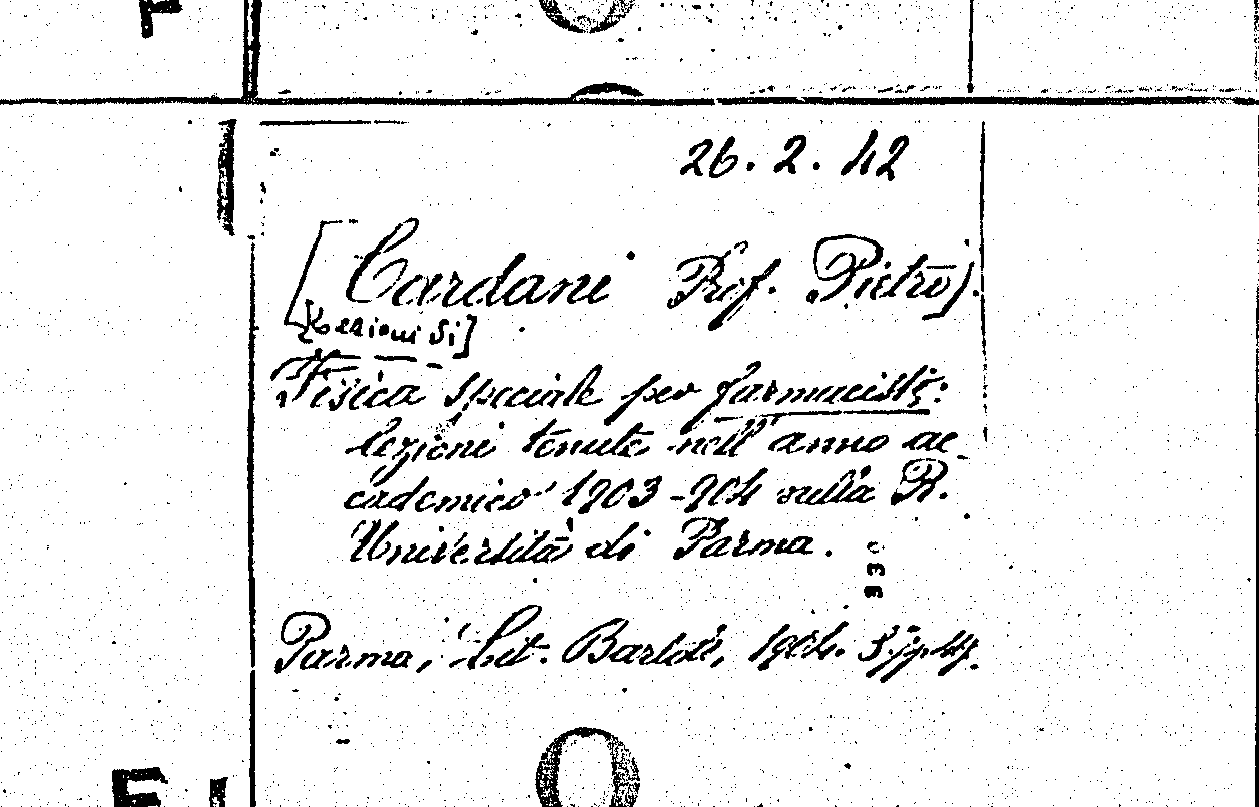 26. 2. 42
[Cardani Prof. Pietro].
[Lezioni di]
Fisica speciale per farmacisti:
lezioni tenute nell'anno ac-
cademico 1903-904 nella R.
Università di Parma.
330
Parma, Lit. Bartoli, 1904.